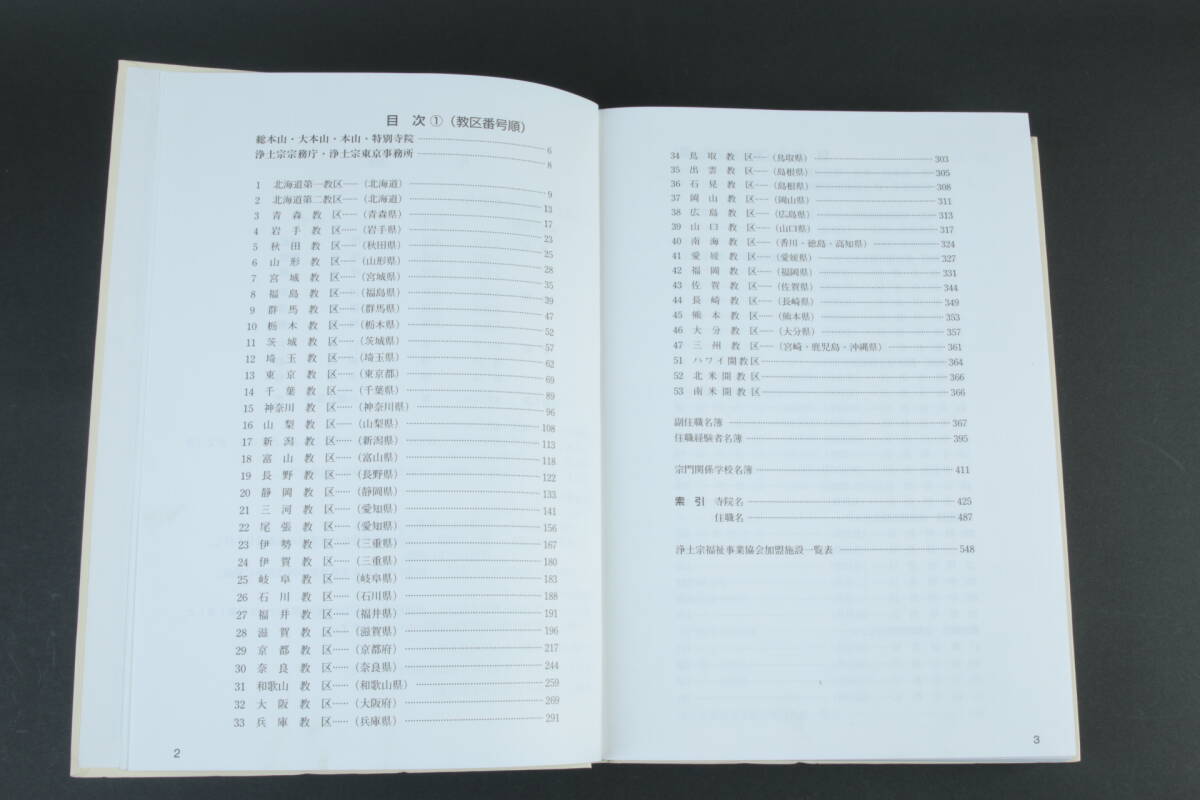 目 次①（教区番号順）
総本山・大本山・本山・特別寺院 6
浄土宗宗務庁・浄土宗東京事務所 8
1 北海道第一教区（北海道） 9
2 北海道第二教区（北海道） 13
3 青森教区（青森県） 17
4 岩手教区（岩手県） 23
5 秋田教区（秋田県） 25
6 山形教区（山形県） 28
7 宮城教区（宮城県） 35
8 福島教区（福島県） 39
9 群馬教区（群馬県） 47
10 栃木教区（栃木県） 52
11 茨城教区（茨城県） 57
12 埼玉教区（埼玉県） 62
13 東京教区（東京都） 69
14 千葉教区（千葉県） 89
15 神奈川教区（神奈川県） 96
16 山梨教区（山梨県） 108
17 新潟教区（新潟県） 113
18 富山教区（富山県） 118
19 長野教区（長野県） 122
20 静岡教区（静岡県） 133
21 三河教区（愛知県） 141
22 尾張教区（愛知県） 156
23 伊勢教区（三重県） 167
24 伊賀教区（三重県） 180
25 岐阜教区（岐阜県） 183
26 石川教区（石川県） 188
27 福井教区（福井県） 191
28 滋賀教区（滋賀県） 196
29 京都教区（京都府） 217
30 奈良教区（奈良県） 244
31 和歌山教区（和歌山県） 259
32 大阪教区（大阪府） 269
33 兵庫教区（兵庫県） 291
2
34 鳥取教区（鳥取県） 303
35 出雲教区（島根県） 305
36 石見教区（島根県） 308
37 岡山教区（岡山県） 311
38 広島教区（広島県） 313
39 山口教区（山口県） 317
40 南海教区（香川・徳島・高知県） 324
41 愛媛教区（愛媛県） 327
42 福岡教区（福岡県） 331
43 佐賀教区（佐賀県） 344
44 長崎教区（長崎県） 349
45 熊本教区（熊本県） 353
46 大分教区（大分県） 357
47 三州教区（宮崎・鹿児島・沖縄県） 361
51 ハワイ開教区 364
52 北米開教区 366
53 南米開教区 366
副住職名簿 367
住職経験者名簿 395
宗門関係学校名簿 411
索 引 寺院名 425
住職名 487
浄土宗福祉事業協会加盟施設一覧表 548
3